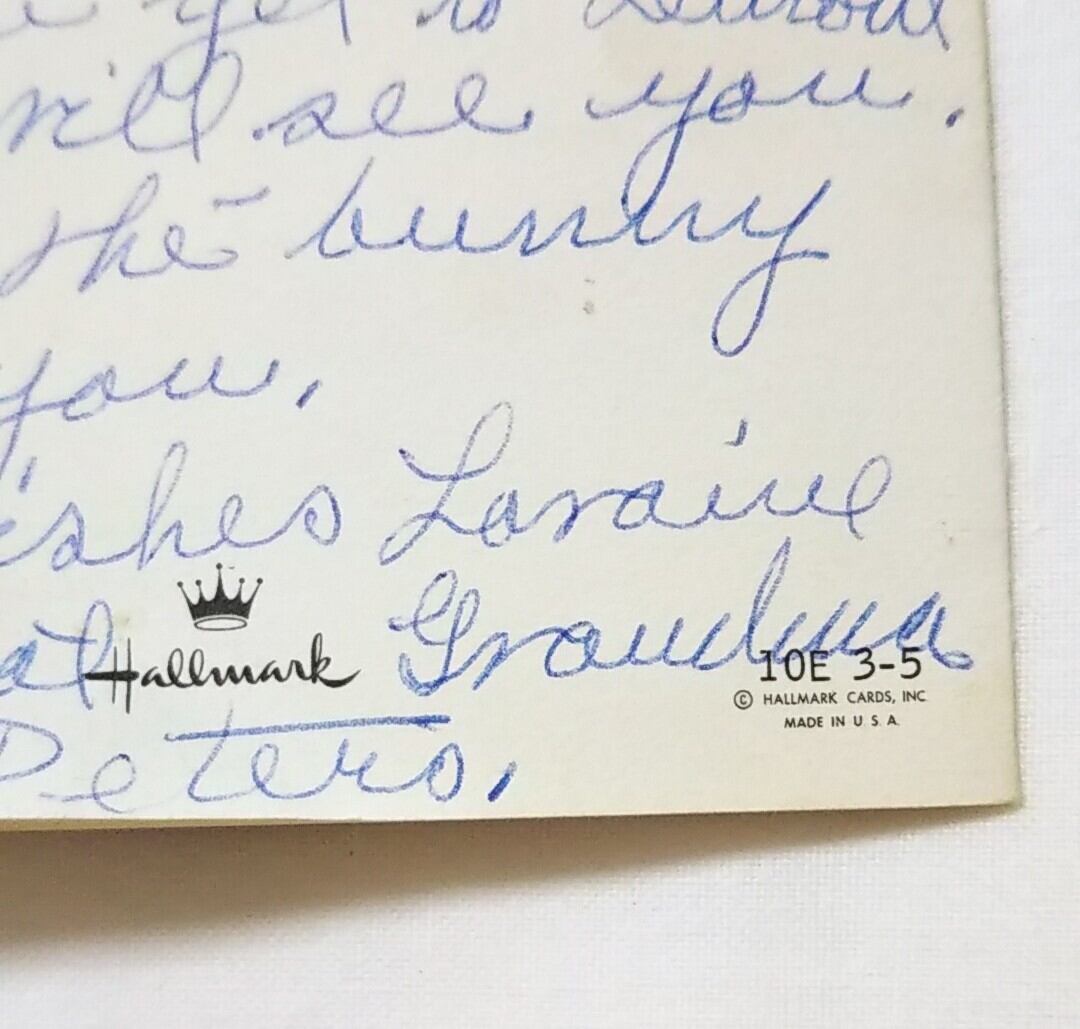 get to Detroit
will see you.
the bunny
you,
ishes Loraine
at Grandma
Hallmark
10E 3-5
© HALLMARK CARDS, INC.
MADE IN U.S.A.
Peters,